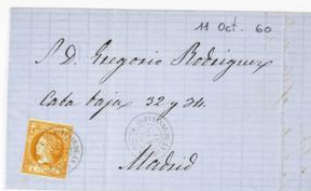 11 Oct. 60
S. D. Gregorio Rodriguez
Caba baja, 32 y 34.
Madrid